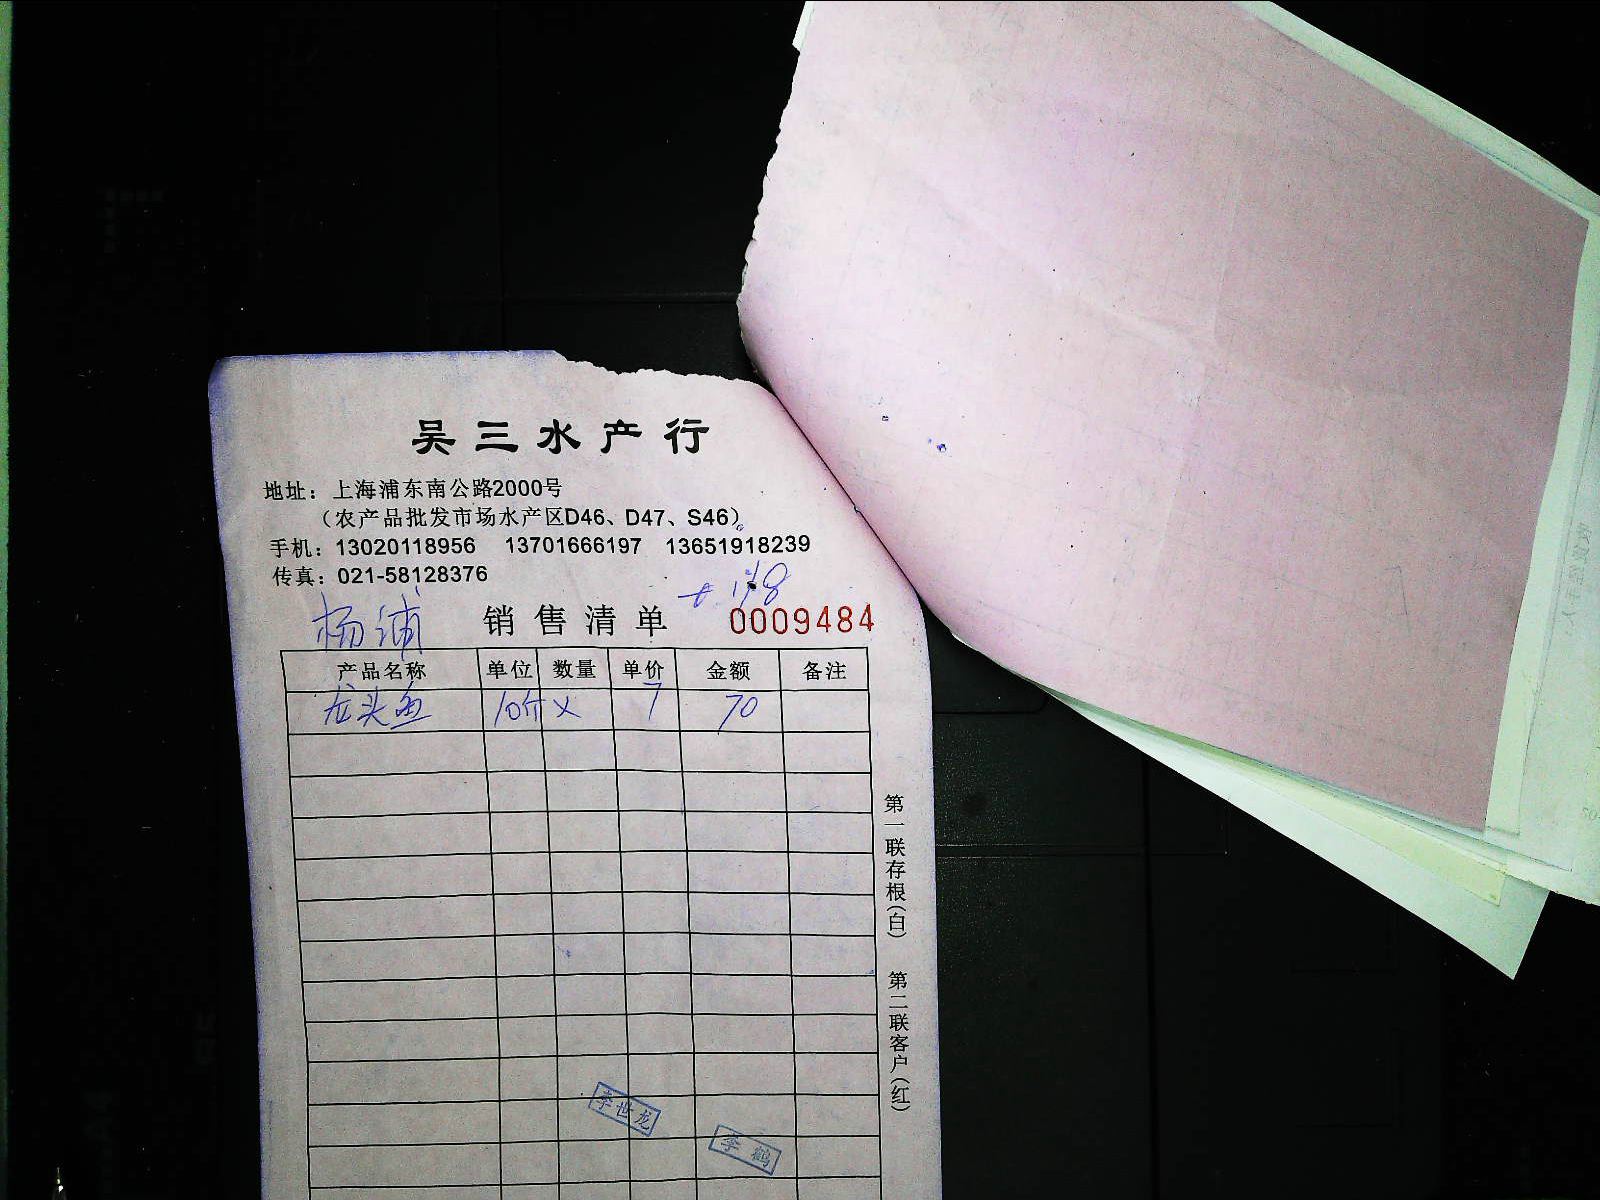 吴三水产行
地址：上海浦东南公路2000号
（农产品批发市场水产区D46、D47、S46）
手机：13020118956 13701666197 13651918239
传真：021-58128376
杨浦 销售清单 0009484
产品名称 单位 数量 单价 金额 备注
龙头鱼 10斤 × 7 70
第一联存根（白） 第二联客户（红）
李世龙
李鹤